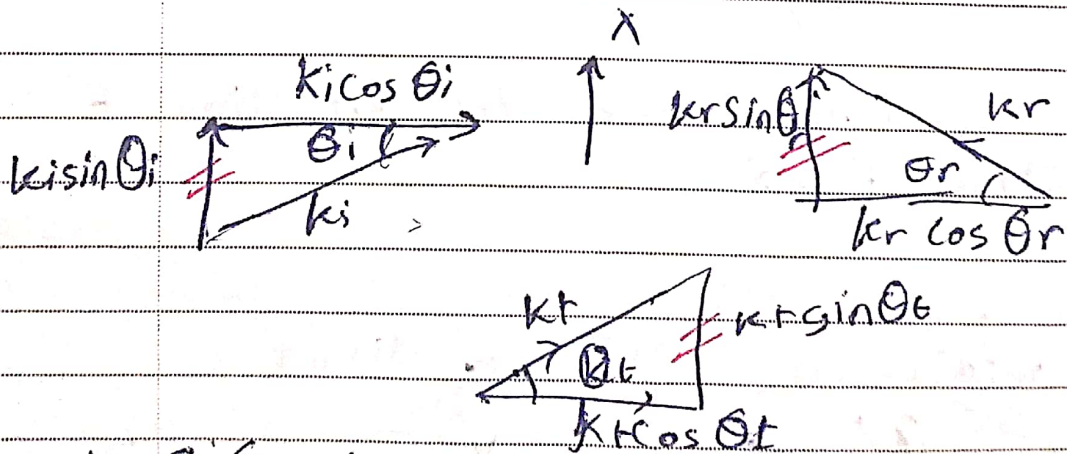 x
ki cos θi
θi
ki sin θi
ki
kr sin θr
kr
θr
kr cos θr
kt
θt
kt sin θt
kt cos θt